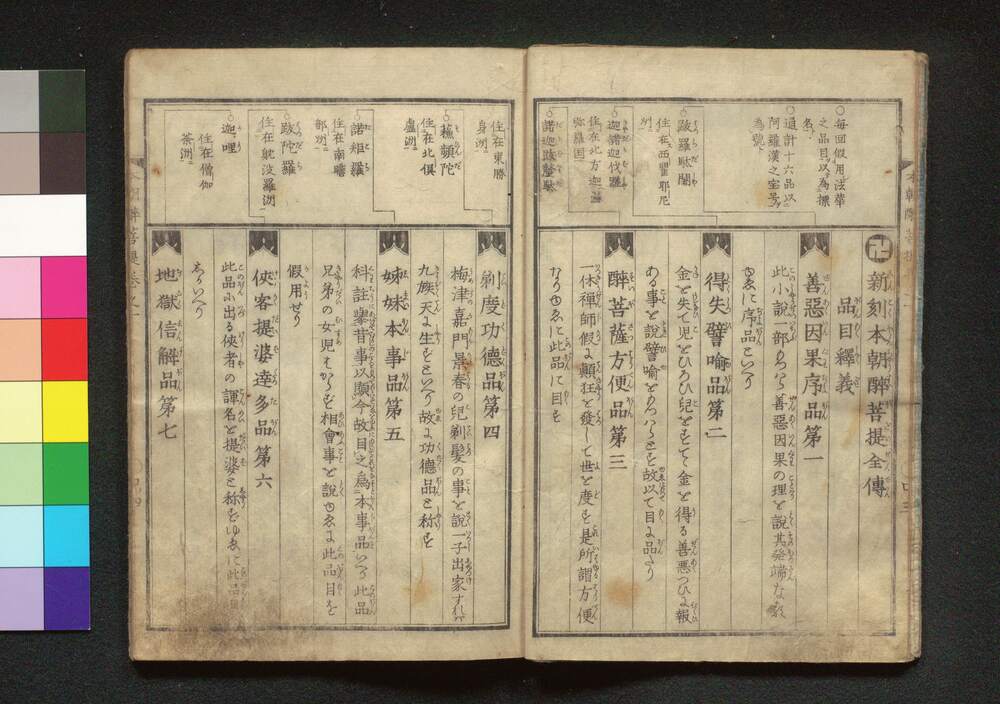 卍新刻本朝醉菩提全傳
品目釋義
善惡因果序品第一
此小說一部のうち善惡因果の理を說其発端なる
ゆゑに序品といへり
得失譬喩品第二
金を失て児をひろひ兒をすてゝ金を得る善惡つひに報
ある事を說譬喩をもつてさとす故以て目に品たり
醉菩薩方便品第三
一休禪師假に顚狂を發して世を度を是所謂方便
なりゆゑに此品に目を
○每回假用法華
之品目以為標
名
○通計十六品以
阿羅漢之宝号
為號
○跋羅駄闍
住在西瞿耶尼
州
○迦諾迦伐蹉
住在北方迦濕
弥羅国
○諾迦跋釐駄
住在東勝
身洲
○蘓頻陀
住在北俱
盧洲
○諾矩羅
住在南瞻
部州
○跋陀羅
住在躭波羅洲
○迦哩
住在僧伽
茶洲
剃度功德品第四
梅津嘉門景春の兒剃髮の事を說一子出家すれば
九族天に生をといへり故に功德品と称を
姊妹本事品第五
科註擧昔事以顯今故目之為本事品といへり此品
兄弟の女児はからを相會事を說ゆゑに此品目を
假用せり
俠客提婆達多品第六
此品に出る俠者の諢名を提婆と称をゆゑに此品目
あらへり
地獄信解品第七